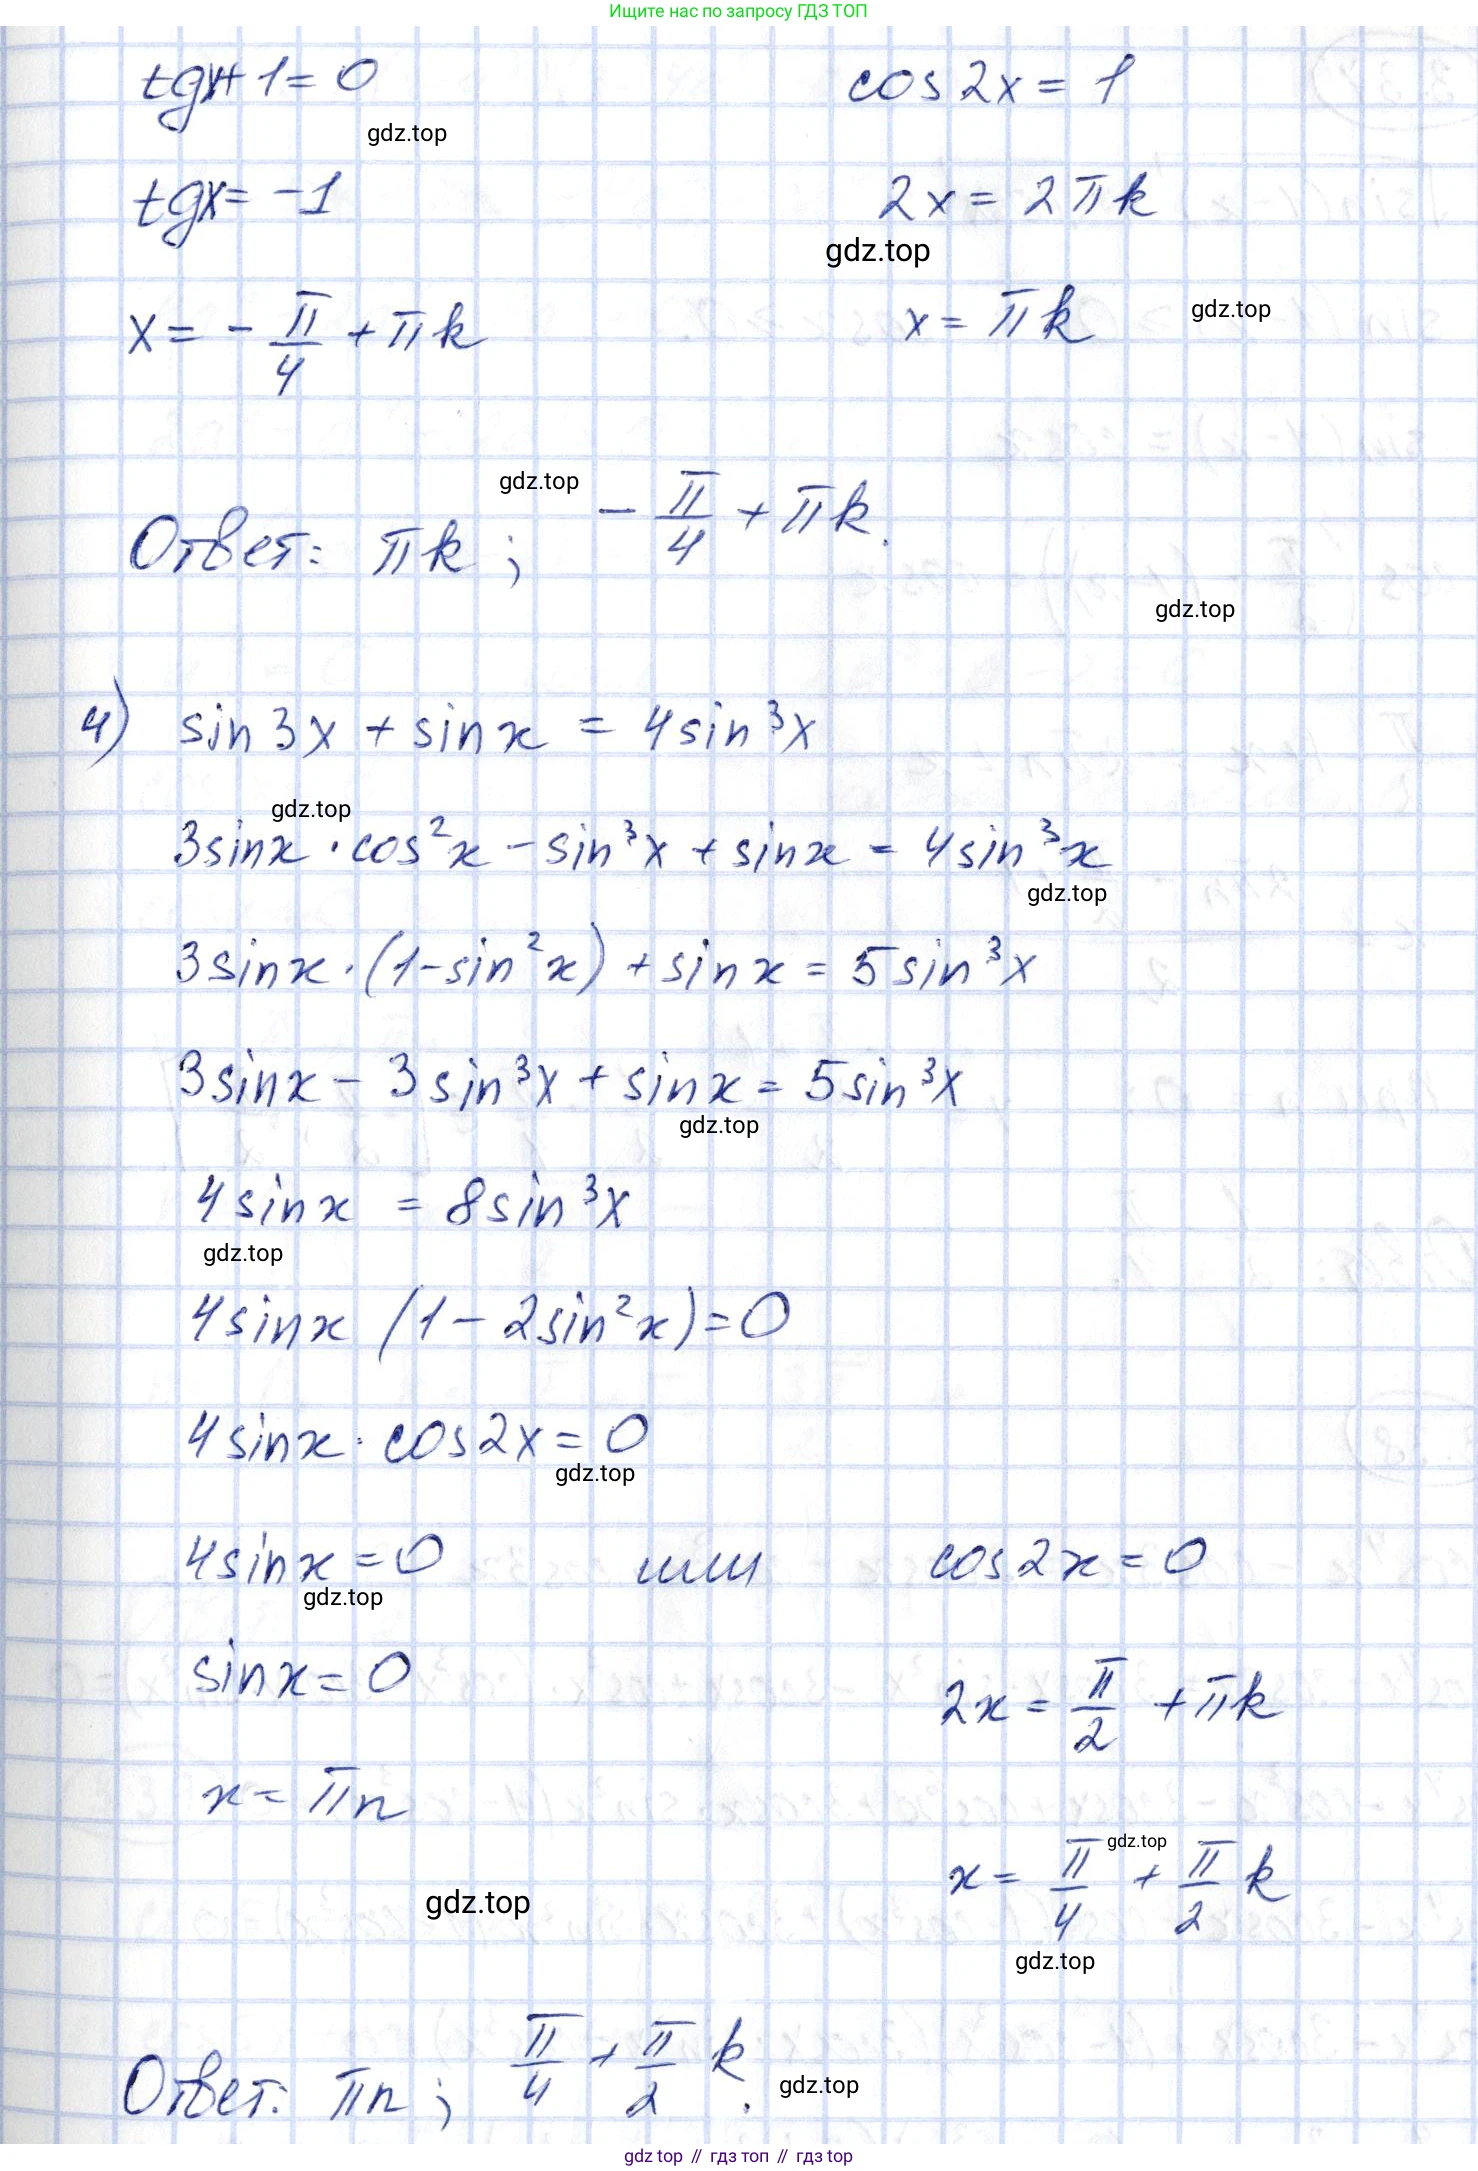 Ищите нас по запросу ГДЗ ТОП
tgx+1=0 cos2x=1
gdz.top
tgx=-1 2x=2πk
gdz.top
x=-π/4+πk x=πk
gdz.top
gdz.top
Ответ: πk; -π/4+πk.
gdz.top
4) sin3x+sinx=4sin³x
gdz.top
3sinx·cos²x-sin³x+sinx=4sin³x
gdz.top
3sinx·(1-sin²x)+sinx=5sin³x
3sinx-3sin³x+sinx=5sin³x
gdz.top
4sinx=8sin³x
gdz.top
4sinx(1-2sin²x)=0
4sinx·cos2x=0
gdz.top
4sinx=0 или cos2x=0
gdz.top
sinx=0 2x=π/2+πk
x=πn
gdz.top
x=π/4+π/2k
gdz.top
gdz.top
Ответ: πn; π/4+π/2k.
gdz.top
gdz.top // гдз топ // гдз.top